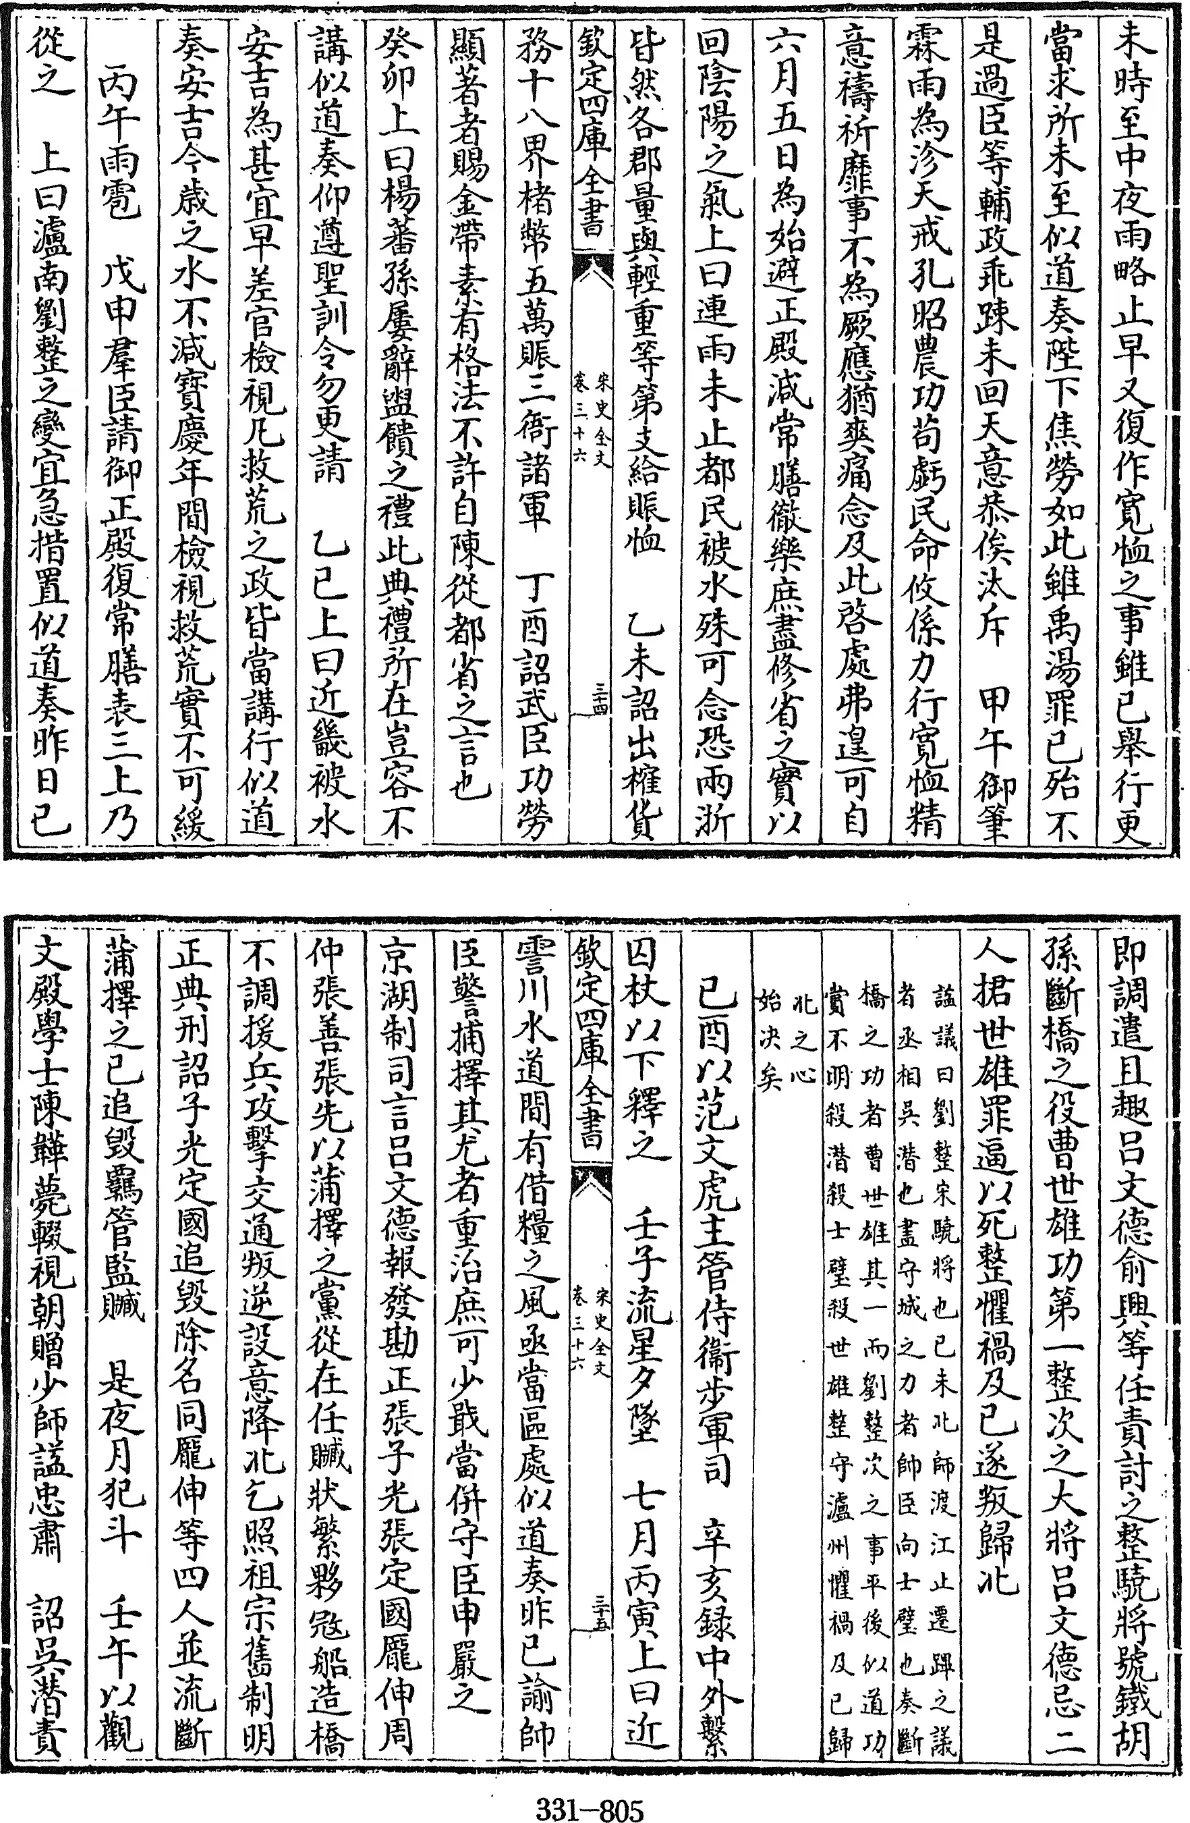 未時至中夜雨略止早又復作寛恤之事雖已舉行更
當求所未至似道奏陛下焦勞如此雖禹湯罪已殆不
是過臣等輔政乖踈未回天意恭俟汰斥　甲午御筆
霖雨為沴天戒孔昭農功苟虧民命攸係力行寛恤精
意禱祈靡事不為厥應猶爽痛念及此啓處弗遑可自
六月五日為始避正殿減常膳徹樂庶盡修省之實以
回陰陽之氣上曰連雨未止都民被水殊可念恐兩浙
皆然各郡量與輕重等第支給賑恤　乙未詔出榷貨
欽定四庫全書
宋史全文
卷三十六
三十四
務十八界楮幣五萬賑三衙諸軍　丁酉詔武臣功勞
顯著者賜金帶素有格法不許自陳從都省之言也
癸卯上曰楊蕃孫屢辭盥饋之禮此典禮所在豈容不
講似道奏仰遵聖訓令勿更請　乙巳上曰近畿被水
安吉為甚宜早差官檢視凡救荒之政皆當講行似道
奏安吉今歲之水不減寶慶年間檢視救荒實不可緩
丙午雨雹　戊申羣臣請御正殿復常膳表三上乃
從之　上曰瀘南劉整之變宜急措置似道奏昨日已
即調遣且趣呂文德俞興等任責討之整驍將號鐵胡
孫斷橋之役曹世雄功第一整次之大將呂文德忌二
人捃世雄罪逼以死整懼禍及已遂叛歸北
謚議曰劉整宋驍將也已未北師渡江止遷蹕之議
者丞相吳潛也盡守城之力者帥臣向士璧也奏斷
橋之功者曹世雄其一而劉整次之事平後似道功
賞不明殺潛殺士璧殺世雄整守瀘州懼禍及已歸
北之心
始決矣
已酉以范文虎主管侍衞步軍司　辛亥録中外繫
囚杖以下釋之　壬子流星夕墜　七月丙寅上曰近
欽定四庫全書
宋史全文
卷三十六
三十五
霅川水道間有借糧之風亟當區處似道奏昨已諭帥
臣警捕擇其尤者重治庶可少戢當併守臣申嚴之
京湖制司言呂文德報發勘正張子光張定國龐伸周
仲張善張先以蒲擇之黨從在任贓狀繁夥冦船造橋
不調援兵攻擊交通叛逆設意降北乞照祖宗舊制明
正典刑詔子光定國追毁除名同龐伸等四人並流斷
蒲擇之已追毁羈管監贓　是夜月犯斗　壬午以觀
文殿學士陳韡薨輟視朝贈少師謚忠肅　詔吳潛責
331-805